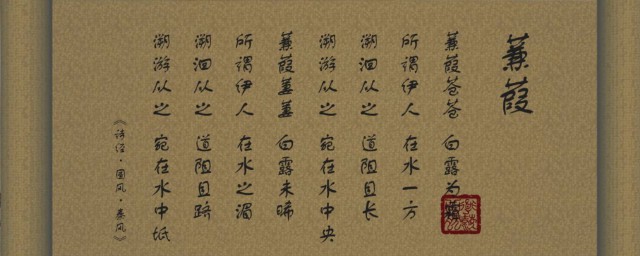 蒹葭
蒹葭苍苍 白露为霜
所谓伊人 在水一方
溯洄从之 道阻且长
溯游从之 宛在水中央
蒹葭萋萋 白露未晞
所谓伊人 在水之湄
溯洄从之 道阻且跻
溯游从之 宛在水中坻
《诗经·国风·秦风》